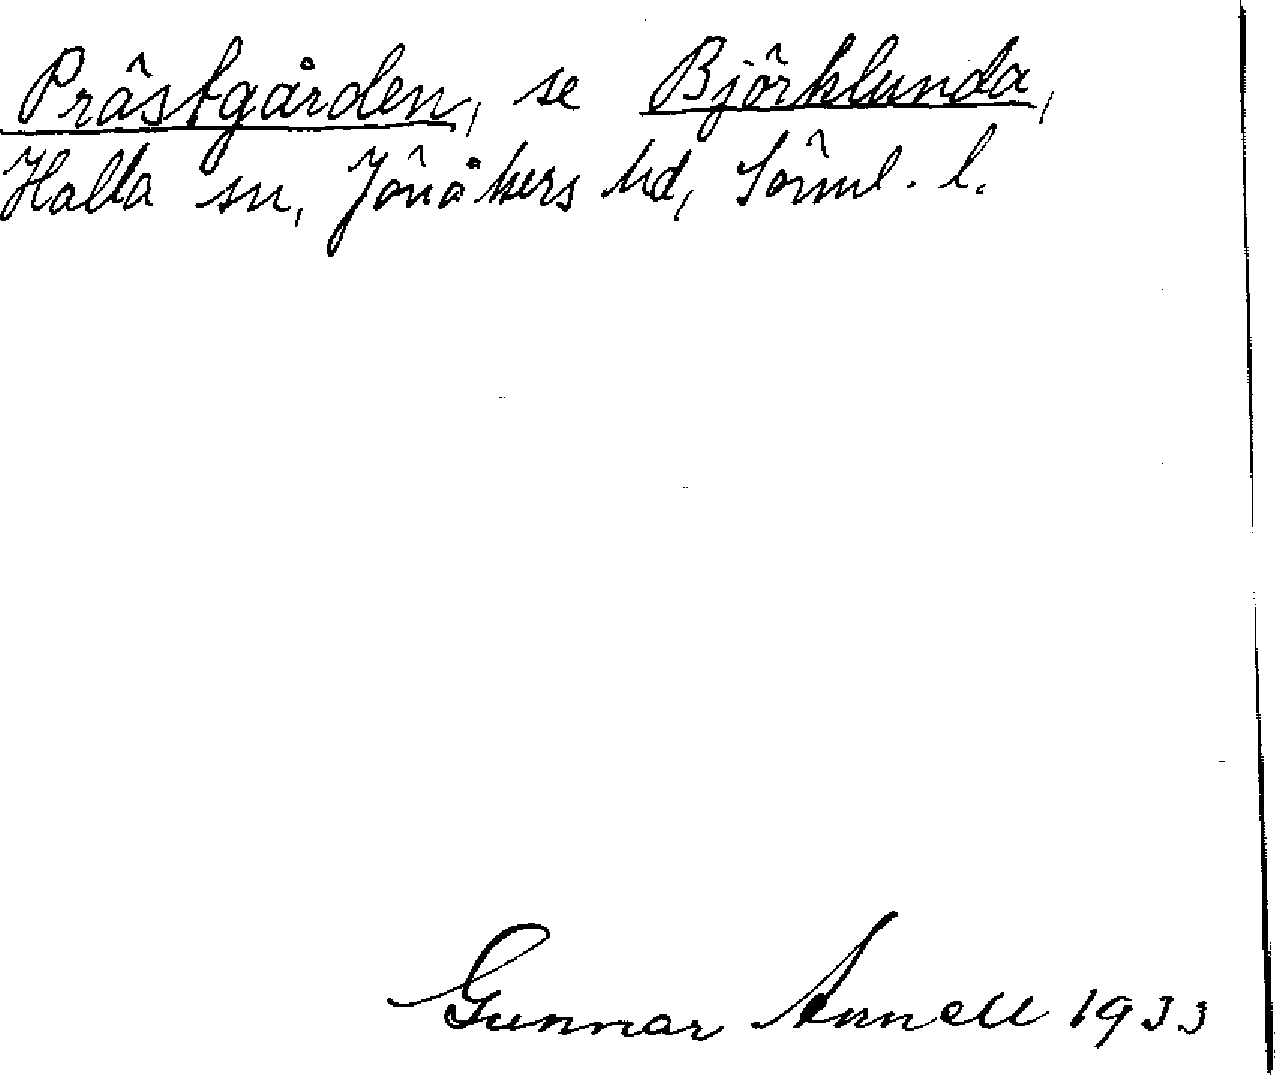 Prästgården, se Björklunda,
Halla sn, Jönåkers hd, Sörml. l.
Gunnar Annell 1933